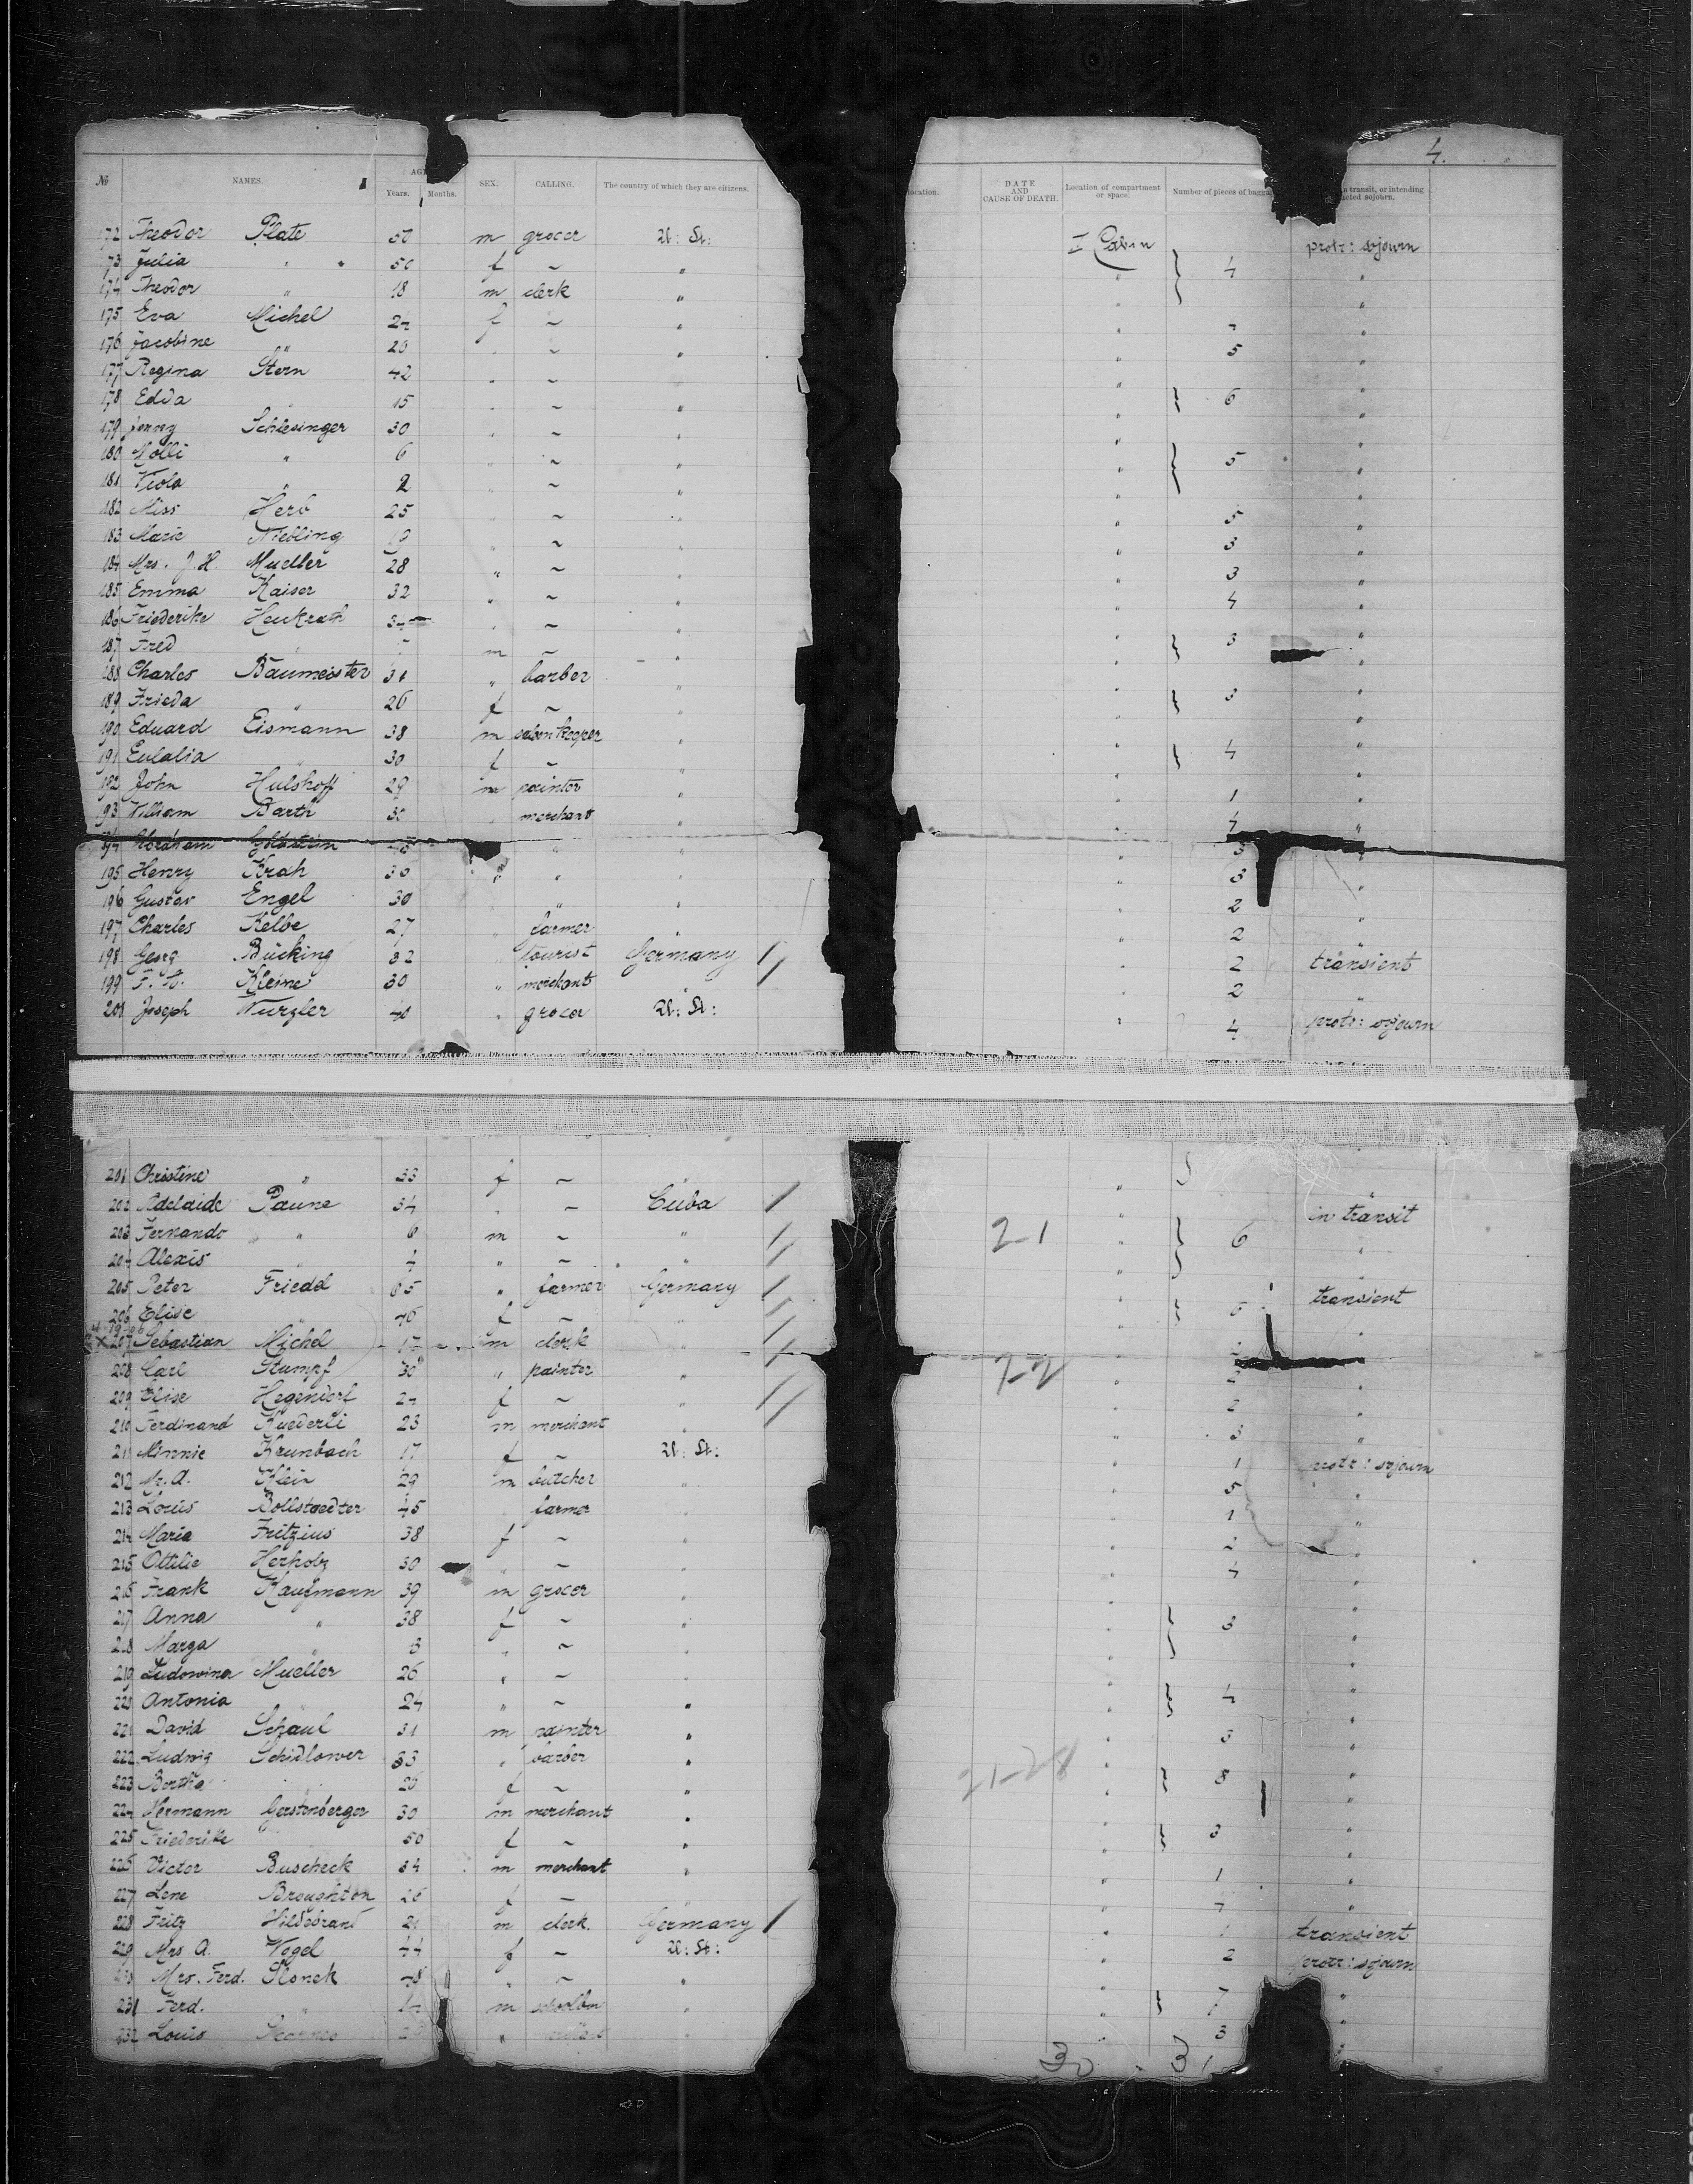 4.
№ NAMES. AG SEX. CALLING. The country of which they are citizens. location. DATE AND CAUSE OF DEATH. Location of compartment or space. Number of pieces of bagga n transit, or intending cted sojourn.
Years. Months.
172 Theodor Plate 50 m grocer U: St: I Cabin protr: sojourn
173 Julia " " 50 f ~ " " 4 "
174 Theodor " 18 m clerk " "
175 Eva Michel 24 f ~ " " "
176 Jacobine " 20 ~ " " 5 "
177 Regina Stern 42 " ~ " " "
178 Edda 15 " ~ " 6 "
179 Jenny Schlesinger 30 " ~ " " "
180 Molli " 6 " ~ " " 5 "
181 Viola " 2 " ~ " "
182 Miss Herb 25 " ~ " " 5 "
183 Marie Niebling " ~ " " 3 "
184 Mrs. J. H. Mueller 28 " ~ " " 3 "
185 Emma Kaiser 32 " ~ " " 4 "
186 Friederike Heukrath " ~ " " 3 "
187 Fred m ~ " "
188 Charles Baumeister 31 " barber " "
189 Frieda " 26 f ~ " " 3 "
190 Eduard Eismann 38 m saloon keeper " " "
191 Eulalia " 30 f ~ " " 4 "
192 John Hulshoff 29 m painter " " 1 "
193 William Barth 30 " merchant " " 4 "
194 Abraham Goldstein " " " 3 "
195 Henry Krah 30 " " " " 3 "
196 Gustav Engel 30 " " " 2 "
197 Charles Kelbe 27 " farmer " " 2 "
198 Georg Bücking 32 " tourist Germany 2 transient
199 Kleine 30 " merchant " " 2 "
200 Joseph Wurzler 40 " grocer U: St: " 4 protr: sojourn
201 Christine " 33 f ~ " "
202 Adelaide Paune 34 " ~ Cuba " in transit
203 Fernando " 6 m ~ " 2-1 " 6 "
204 Alexis " 4 " ~ " " "
205 Peter Friedel 65 " farmer Germany " transient
206 Elise " 46 f ~ " " 6 "
207 Sebastian Michel 17 m clerk " " 2 "
208 Carl Stumpf 30 " painter " " 2 "
209 Elise Hegendorf 24 f ~ " " 2 "
210 Ferdinand Kuederli 23 m merchant " " 3 "
211 Minnie Krunbach 17 f ~ U: St: " 1 protr: sojourn
212 A. Klein 29 m butcher " " 5 "
213 Louis Bollstaedter 45 " farmer " " 1 "
214 Maria Fritzius 38 f ~ " " 2 "
215 Ottilie Herholz 30 " ~ " " 4 "
216 Frank Kaufmann 39 m grocer " " "
217 Anna " 38 f ~ " " 3 "
218 Marga " 3 " ~ " " "
219 Ludowina Mueller 26 " ~ " " "
220 Antonia " 24 " ~ " " 4 "
221 David Schaul 31 m painter " " 3 "
222 Ludwig Schidlower 33 " barber " 21-28 " "
223 Bertha " 26 f ~ " " 8 "
224 Hermann Gerstenberger 30 m merchant " " "
225 Friederike " 50 f ~ " " 3 "
226 Victor Buscheck 34 m merchant " " 1 "
227 Lene Broughton 26 f ~ " " 4 "
228 Fritz Hildebrand 21 m clerk. Germany " 1 transient
229 Mrs A. Vogel 44 f ~ U: St: " 2 protr: sojourn
230 Mrs. Ferd. Slonek 48 " ~ " " 7 "
231 Ferd. " m schoolboy " " "
232 Louis " " " 3 "
30 - 31